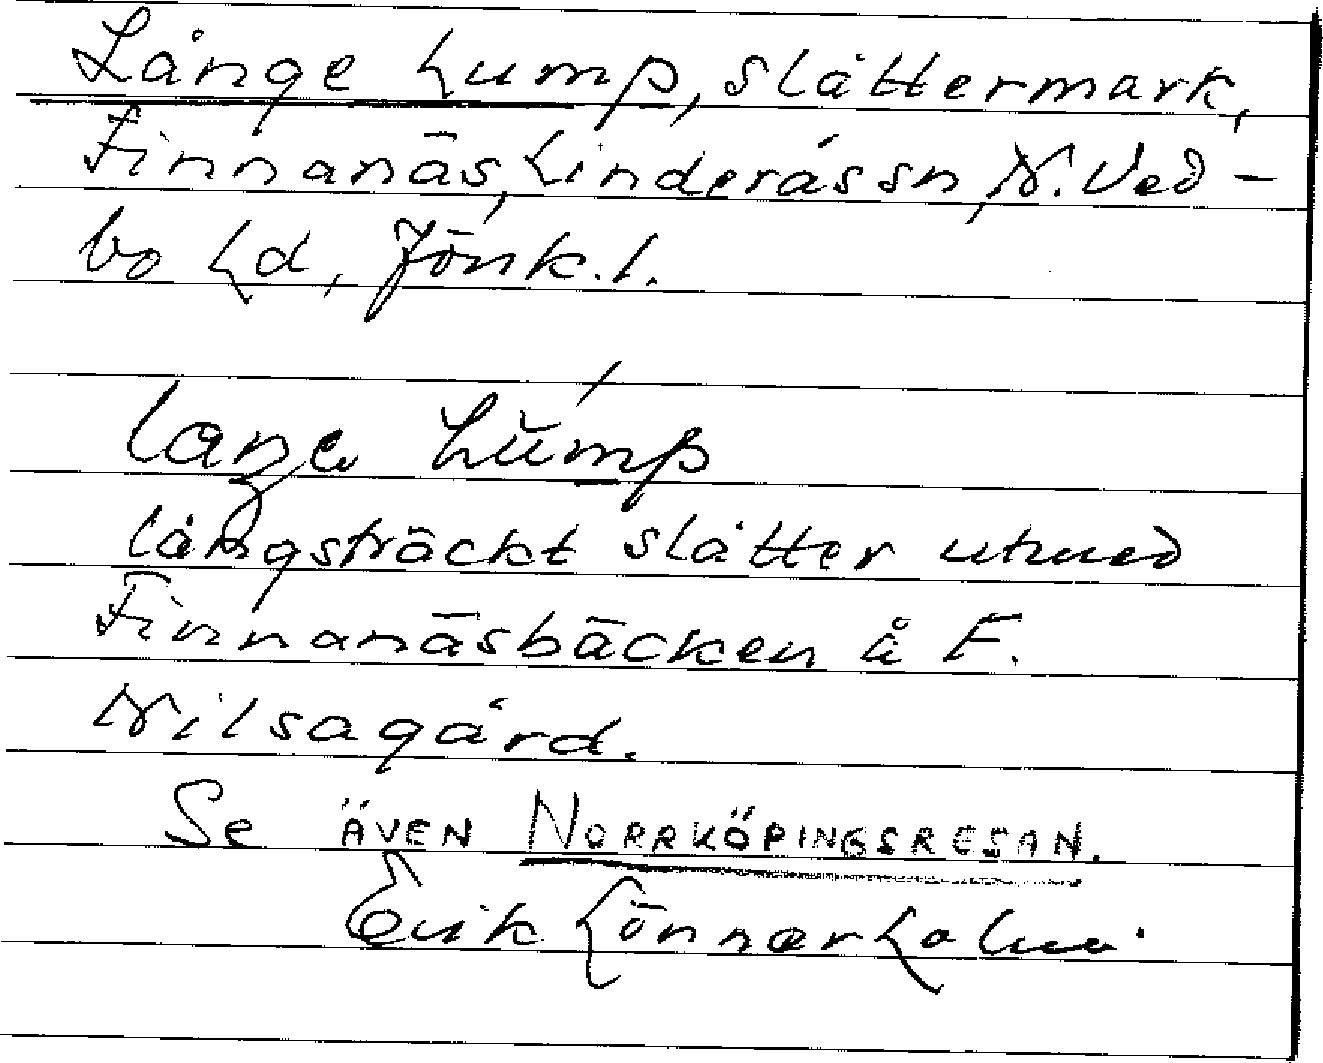 Långe hump, slåttermark,
Finnanäs, Linderås sn, N. Ved-
bo hd, Jönk. l.
långsträckt slåtter utmed
Finnanäsbäcken å F.
Nilsagård.
Se ÄVEN NORRKÖPINGSRESAN.
Erik Lönnerholm.